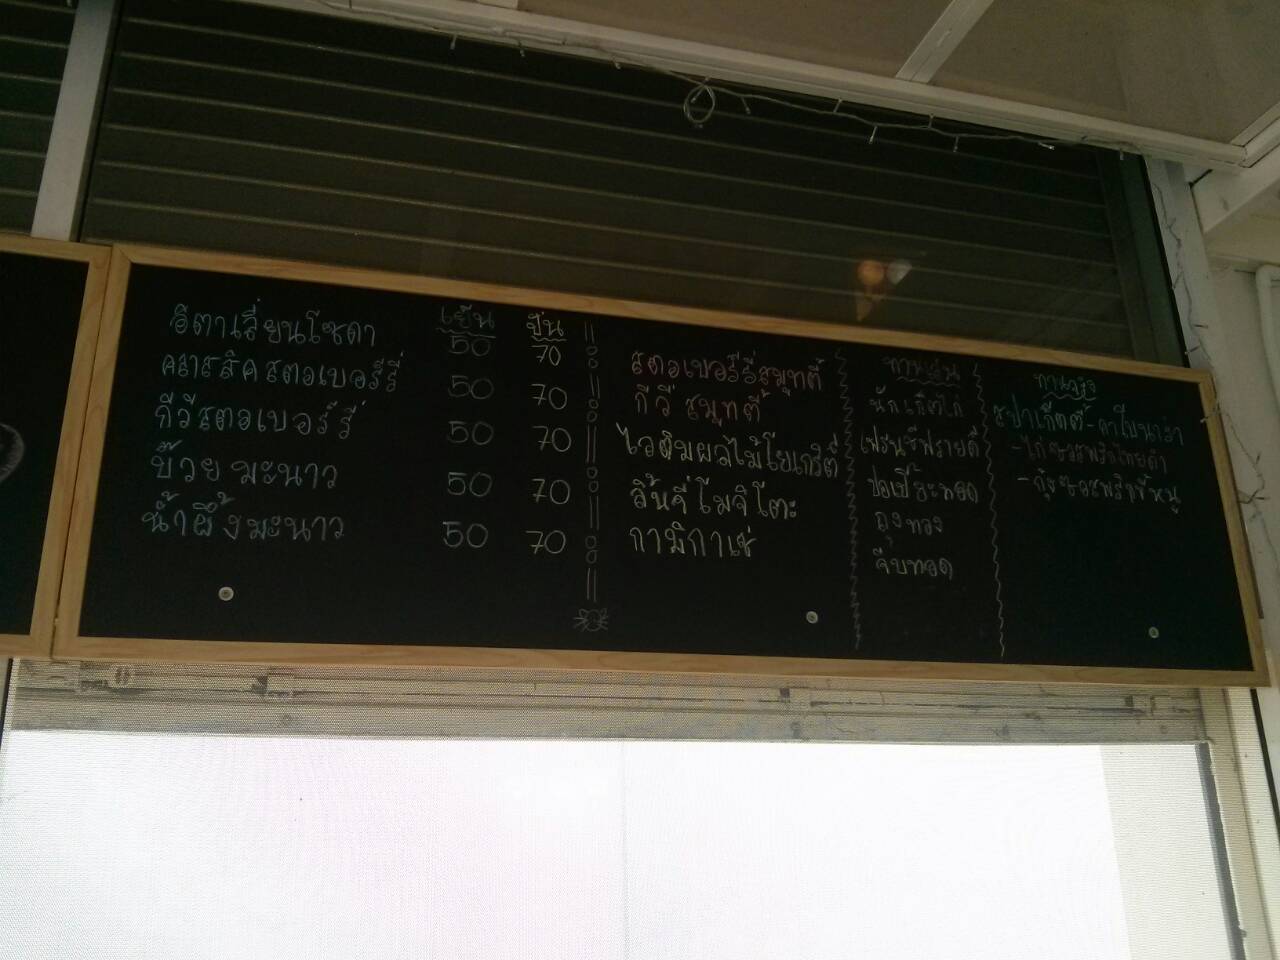 อิตาเลี่ยนโซดา เย็น ปั่น
50 70
คลาสสิคสตอเบอร์รี่ 50 70
กีวีสตอเบอร์รี่ 50 70
บ๊วยมะนาว 50 70
น้ำผึ้งมะนาว 50 70
สตอเบอร์รี่สมูทตี้
กีวี่ สมูทตี้
ไอติมผลไม้โยเกริตี์
ลิ้นจี่โมจิโตะ
กามิกาเซ่
ทานเล่น
นักเก็ตไก่
เฟรนช์ฟรายด์
ปอเปี๊ยะทอด
ถุงทอง
จีบทอด
ทานจริง
สปาเก็ตตี้-คาโบนาร่า
-ไก่ซอสพริกไทยดำ
-กุ้งซอสพริกขี้หนู